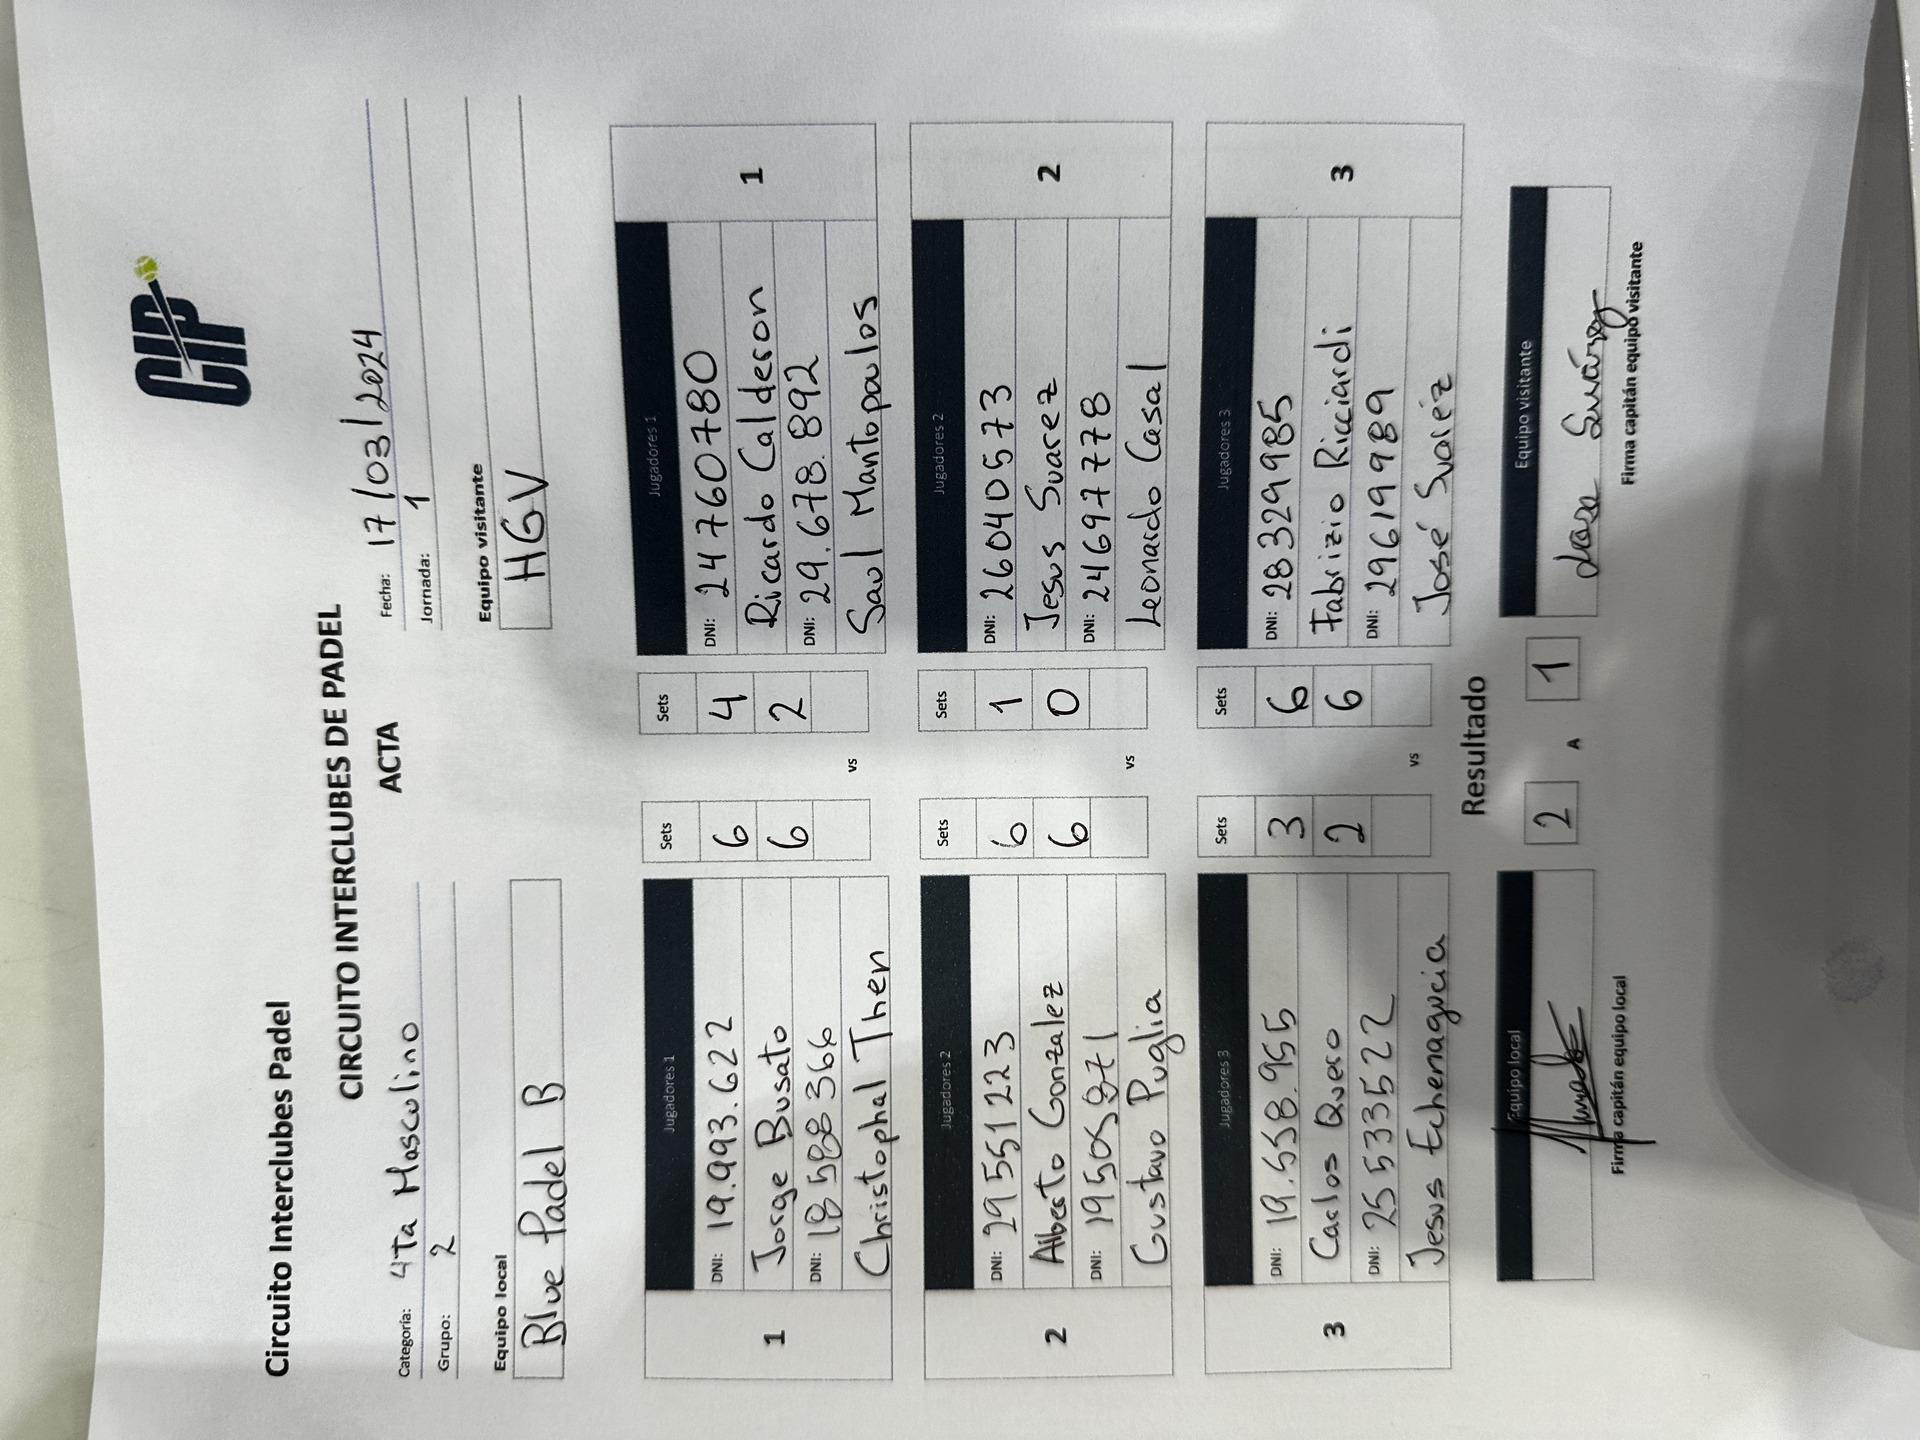 CIP
Circuito Interclubes Padel
CIRCUITO INTERCLUBES DE PADEL
ACTA
Categoría: 4Ta Masculino
Fecha: 17/03/2024
Grupo: 2
Jornada: 1
Equipo local
Equipo visitante
Blue Padel B
HGV
Jugadores 1 Sets Sets Jugadores 1
1
DNI: 19.993.622 6 4 DNI: 24760780
Jorge Busato 6 2 Ricardo Calderon
1
DNI: 18588366 DNI: 29.678.892
Christophal Then vs Saul Mantopoulos
Jugadores 2 Sets Sets Jugadores 2
2
DNI: 29551223 6 1 DNI: 26040573
Alberto Gonzalez 6 0 Jesus Suarez
2
DNI: DNI: 24697778
Gustavo Puglia vs Leonardo Casal
Jugadores 3 Sets Sets Jugadores 3
3
DNI: 19.558.955 3 6 DNI: 28329985
Carlos Quero 2 6 Fabrizio Ricciardi
3
DNI: 25533522 DNI: 29619989
Jesus Echenagucia vs José Suaréz
Resultado
Equipo local 2 A 1 Equipo visitante
Jose Suárez
Firma capitán equipo local
Firma capitán equipo visitante